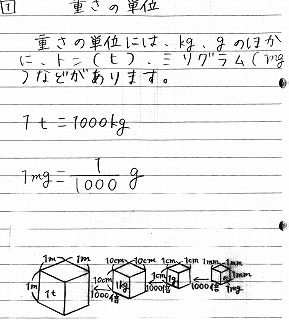 1 重さの単位
重さの単位には、kg、gのほか
に、トン(t)、ミリグラム(mg
)などがあります。
1t=1000kg
1mg=1/1000 g
1m 1m 10cm 10cm 1cm 1cm 1mm 1mm
1m 10cm 1cm 1mm
1t 1000倍 1kg 1000倍 1g 1000倍 1mg